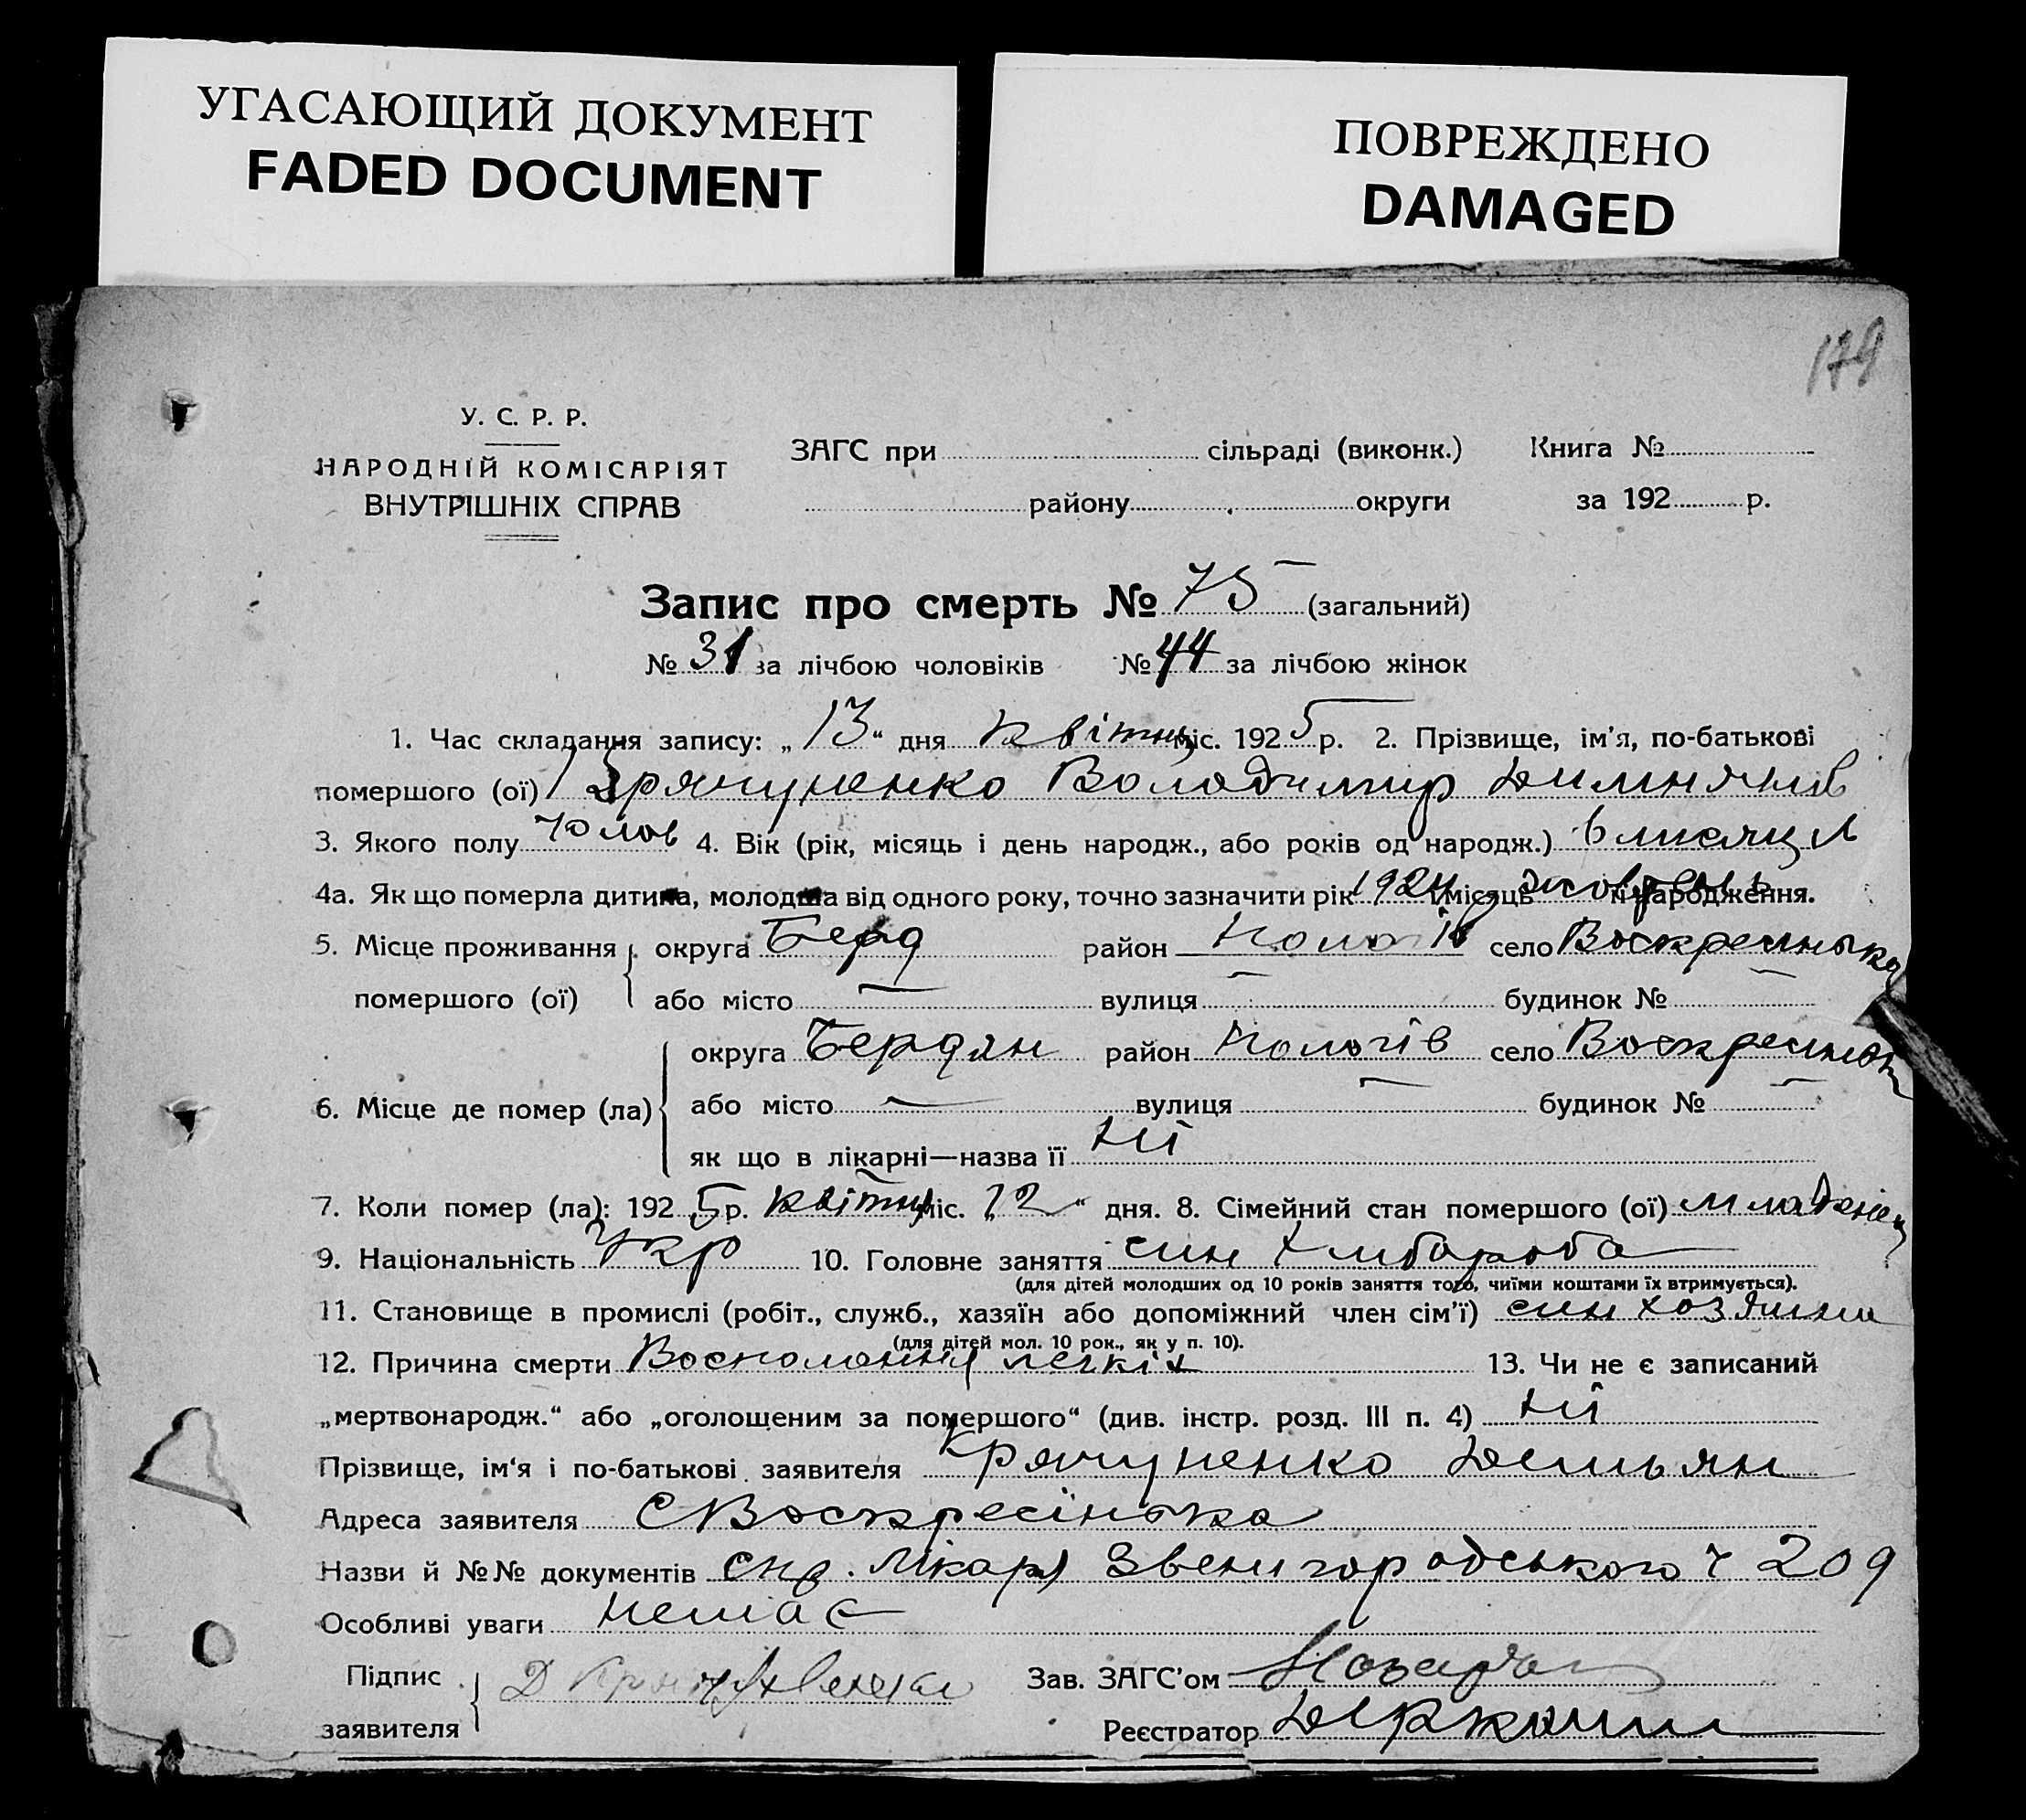 УГАСАЮЩИЙ ДОКУМЕНТ
FADED DOCUMENT
ПОВРЕЖДЕНО
DAMAGED
179
У. С. Р. Р.
НАРОДНІЙ КОМІСАРІЯТ
ВНУТРІШНІХ СПРАВ
ЗАГС при сільраді (виконк.) Книга №
району округи за 192 р.
Запис про смерть № 75 (загальний)
№ 31 за лічбою чоловіків № 44 за лічбою жінок
1. Час складання запису: „13“ дня квітня міс. 1925 р. 2. Прізвище, ім'я, по-батькові
помершого (ої) Володимир
3. Якого полу чолов 4. Вік (рік, місяць і день народж., або років од народж.) 6 місяців
4а. Як що померла дитина, молодша від одного року, точно зазначити рік 1924 і місяць жовтень її народження.
5. Місце проживання округа Берд район Пологів село Воскресенька
помершого (ої) або місто — вулиця — будинок № —
округа Бердян район Пологів село
6. Місце де помер (ла) або місто — вулиця — будинок № —
як що в лікарні—назва її ні
7. Коли помер (ла): 1925 р. квітня міс. „12“ дня. 8. Сімейний стан помершого (ої) младенец
9. Національність Укр 10. Головне заняття син хлибороба
(для дітей молодших од 10 років заняття того, чиїми коштами їх втримується).
11. Становище в промислі (робіт., служб., хазяїн або допоміжний член сім'ї) син хозяина
(для дітей мол. 10 рок., як у п. 10).
12. Причина смерти легкіх 13. Чи не є записаний
„мертвонародж.“ або „оголошеним за помершого“ (див. інстр. розд. III п. 4) ні
Прізвище, ім'я і по-батькові заявителя Крячуненко Демьян
Адреса заявителя с Воскресінька
Назви й №№ документів спр. лікаря Звенигородського ч 209
Особливі уваги немає
Підпис Д Зав. ЗАГС'ом
заявителя Реєстратор